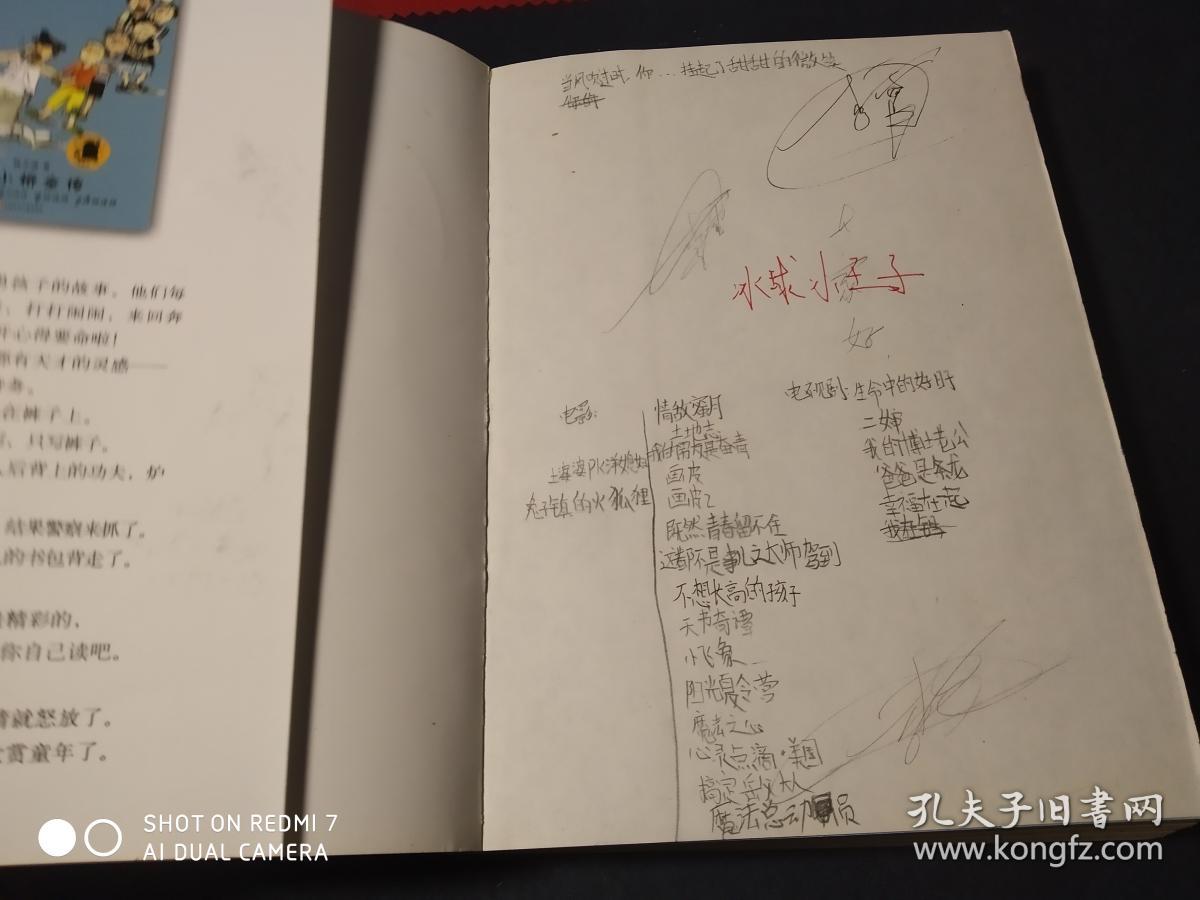 小屁孩传
男孩子的故事，他们每
打打闹闹，来回奔
开心得要命啦！
你有天才的灵感——
在裤子上。
只写裤子。
后背上的功夫，炉
结果警察来抓了。
的书包背走了。
精彩的，
你自己读吧。
就怒放了。
赏童年了。
当风吹过时，你…挂起了甜甜的微笑
大
冰球小王子
家
好
电影：
情敌蜜月
电视剧：生命中的好日
土地志
二婶
上海婆PK洋媳妇
我的博士老公
画皮
爸爸是条龙
兔子镇的火狐狸
画皮2
幸福在一起
既然青春留不住
这都不是事儿之大师驾到
不想长高的孩子
天书奇谭
小飞象
阳光夏令营
魔法之心
心灵点滴·美国
搞定岳父大人
魔法总动员
SHOT ON REDMI 7
AI DUAL CAMERA
孔夫子旧书网
www.kongfz.com